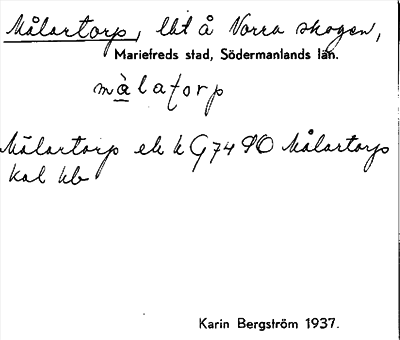 Målartorp, lht å Norra skogen,
Mariefreds stad, Södermanlands län.
màlatorp
Målartorp ek k G74 90 Målartorp
kal hb
Karin Bergström 1937.